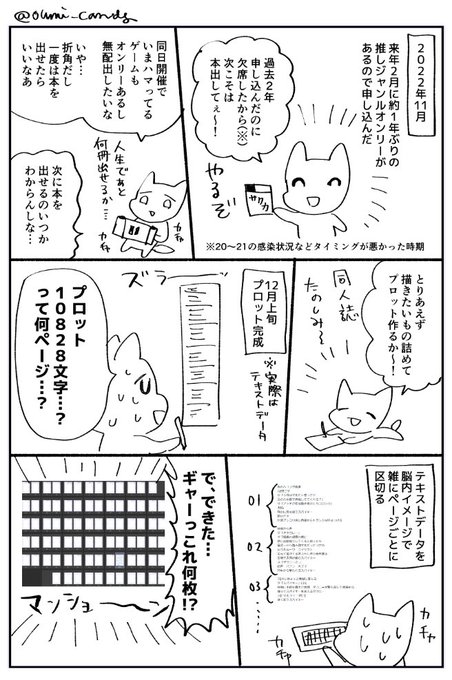 @oumi_cands
2022年11月
来年2月に約1年ぶりの
推しジャンルオンリーが
あるので申し込んだ
過去2年
申し込んだのに
欠席したから(※)
次こそは
本出してぇ〜!
やるぞ
※20〜21の感染状況などタイミングが悪かった時期
同日開催で
いまハマってる
ゲームも
オンリーあるし
無配出したいな
いや…
折角だし
一度は本を
出せたら
いいなあ
人生であと
何冊出せるか…
次に本を
出せるのいつか
わからんしな…
カチャ
カチャ
とりあえず
描きたいもの詰めて
プロット作るか〜!
同人誌
たのしみ〜
12月上旬
プロット完成
※実際は
テキストデータ
ズラーーッ
プロット
10828文字…?
って何ページ…?
テキストデータを
脳内イメージで
雑にページごとに
区切る
01
02
03
カチャ
カチャ
で、できた…
ギャーっこれ何枚!?
マンショーーン